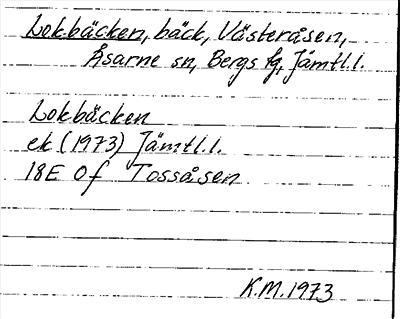 Lokbäcken, bäck, Västeråsen,
Åsarne sn, Bergs fg, Jämtl.l.
Lokbäcken
ek (1973) Jämtl.l.
18E 0f Tossåsen
K.M.1973